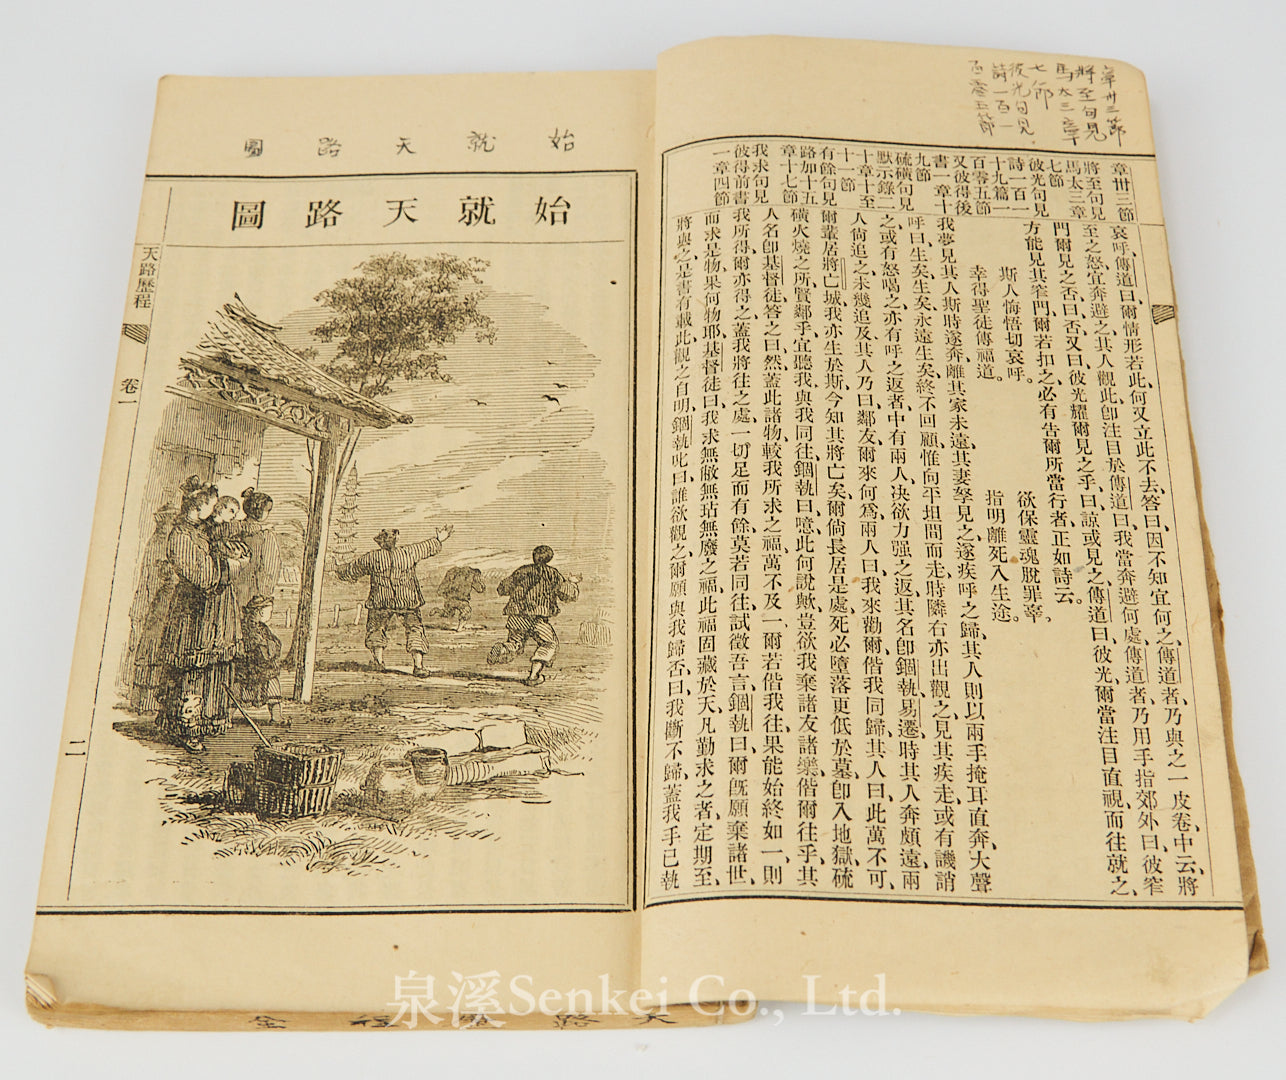 章卅三節
將至句見
馬太三章
七節
彼光句見
詩一百一
百零五節
章卅三節
將至句見
馬太三章
七節
彼光句見
詩一百一
十九篇一
百零五節
又彼得後
書一章十
九節
硫磺句見
默示錄二
十章十至
十一節
有餘句見
路加十五
章十七節
我求句見
彼得前書
一章四節
哀呼、傳道曰、爾情形若此、何又立此不去、答曰、因不知宜何之、傳道者、乃與之一皮卷、中云、將
至之怒、宜奔避之、其人觀此、卽注目於傳道曰、我當奔避何處、傳道者、乃用手指郊外曰、彼窄
門爾見之否、曰、否、又曰、彼光耀爾見之乎、曰、諒或見之、傳道曰、彼光爾當注目直視、而往就之、
方能見其窄門、爾若扣之、必有告爾所當行者、正如詩云、
斯人悔悟切哀呼。 欲保靈魂脫罪辜。
幸得聖徒傳福道。 指明離死入生途。
我夢見其人斯時遂奔、離其家未遠、其妻孥見之、遂疾呼之歸、其人則以兩手掩耳直奔、大聲
呼曰、生矣、生矣、永遠生矣、終不回顧、惟向平坦間而走、時隣右亦出觀之、見其疾走、或有譏誚
之、或有怒喝之、亦有呼之返者、中有兩人、決欲力强之返、其名卽錮執、易遷、時其人奔頗遠、兩
人尙追之、未幾追及、其人乃曰、鄰友、爾來何爲、兩人曰、我來勸爾偕我同歸、其人曰、此萬不可、
爾輩居將亡城、我亦生於斯、今知其將亡矣、爾倘長居是處、死必墮落更低於墓、卽入地獄、硫
磺火燒之所、賢鄰乎、宜聽我與我同往、錮執曰、噫、此何說歟、豈欲我棄諸友諸樂、偕爾往乎、其
人名卽基督徒、答之曰、然、蓋此諸物、較我所求之福、萬不及一、爾若偕我往、果能始終如一、則
我所得、爾亦得之、蓋我將往之處、一切足而有餘、莫若同往、試徵吾言、錮執曰、爾旣願棄諸世、
而求是物、果何物耶、基督徒曰、我求無敝無玷無廢之福、此福固藏於天、凡勤求之者、定期至、
將與之、是書有載、此觀之自明、錮執叱曰、誰欲觀之、爾願與我歸否、曰、我斷不歸、蓋我手已執
始就天路圖
始就天路圖
天路歷程
卷一
二
泉溪Senkei Co., Ltd.
天路歷程全